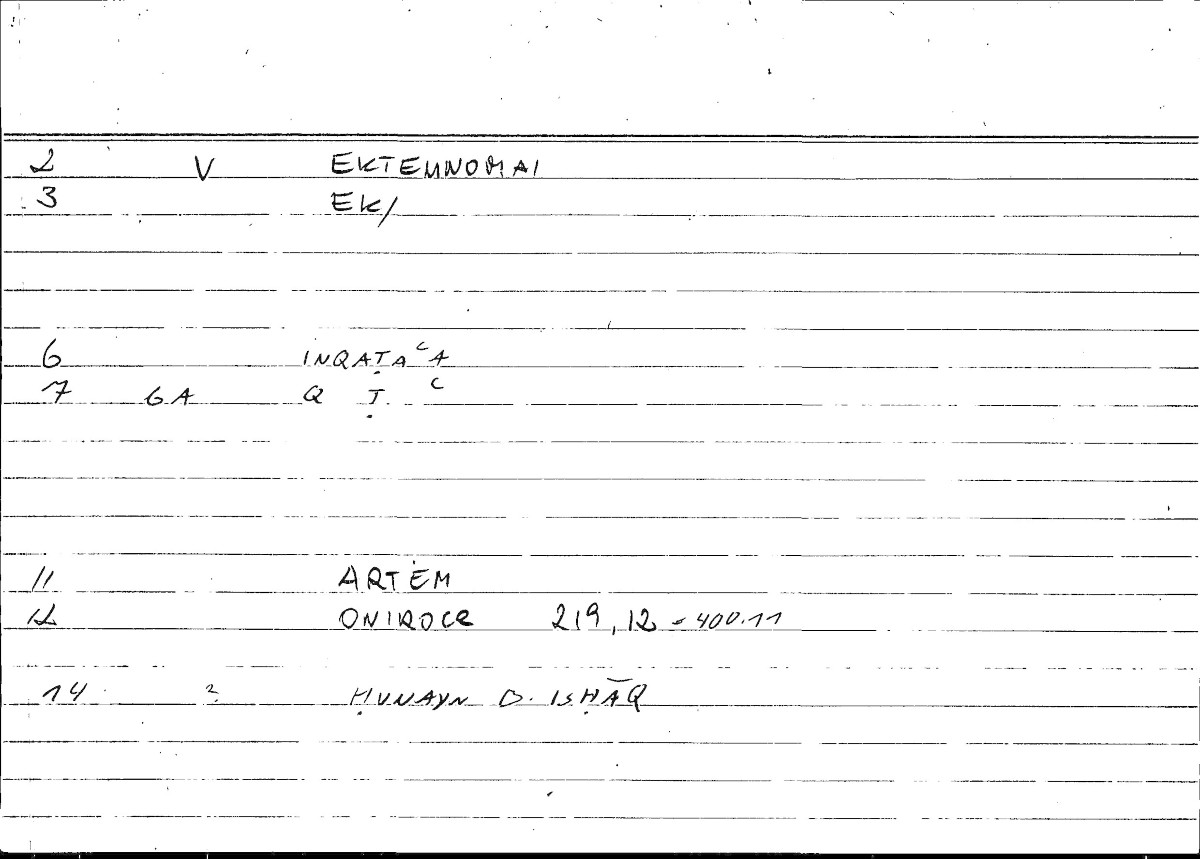 2 V EKTEMNOMAI
3 EK/
6 INQAṬAʿA
7 GA Q Ṭ ʿ
11 ARTEM
12 ONIROCR 219,12 = 400.11
14 ? ḤUNAYN B. ISḤĀQ